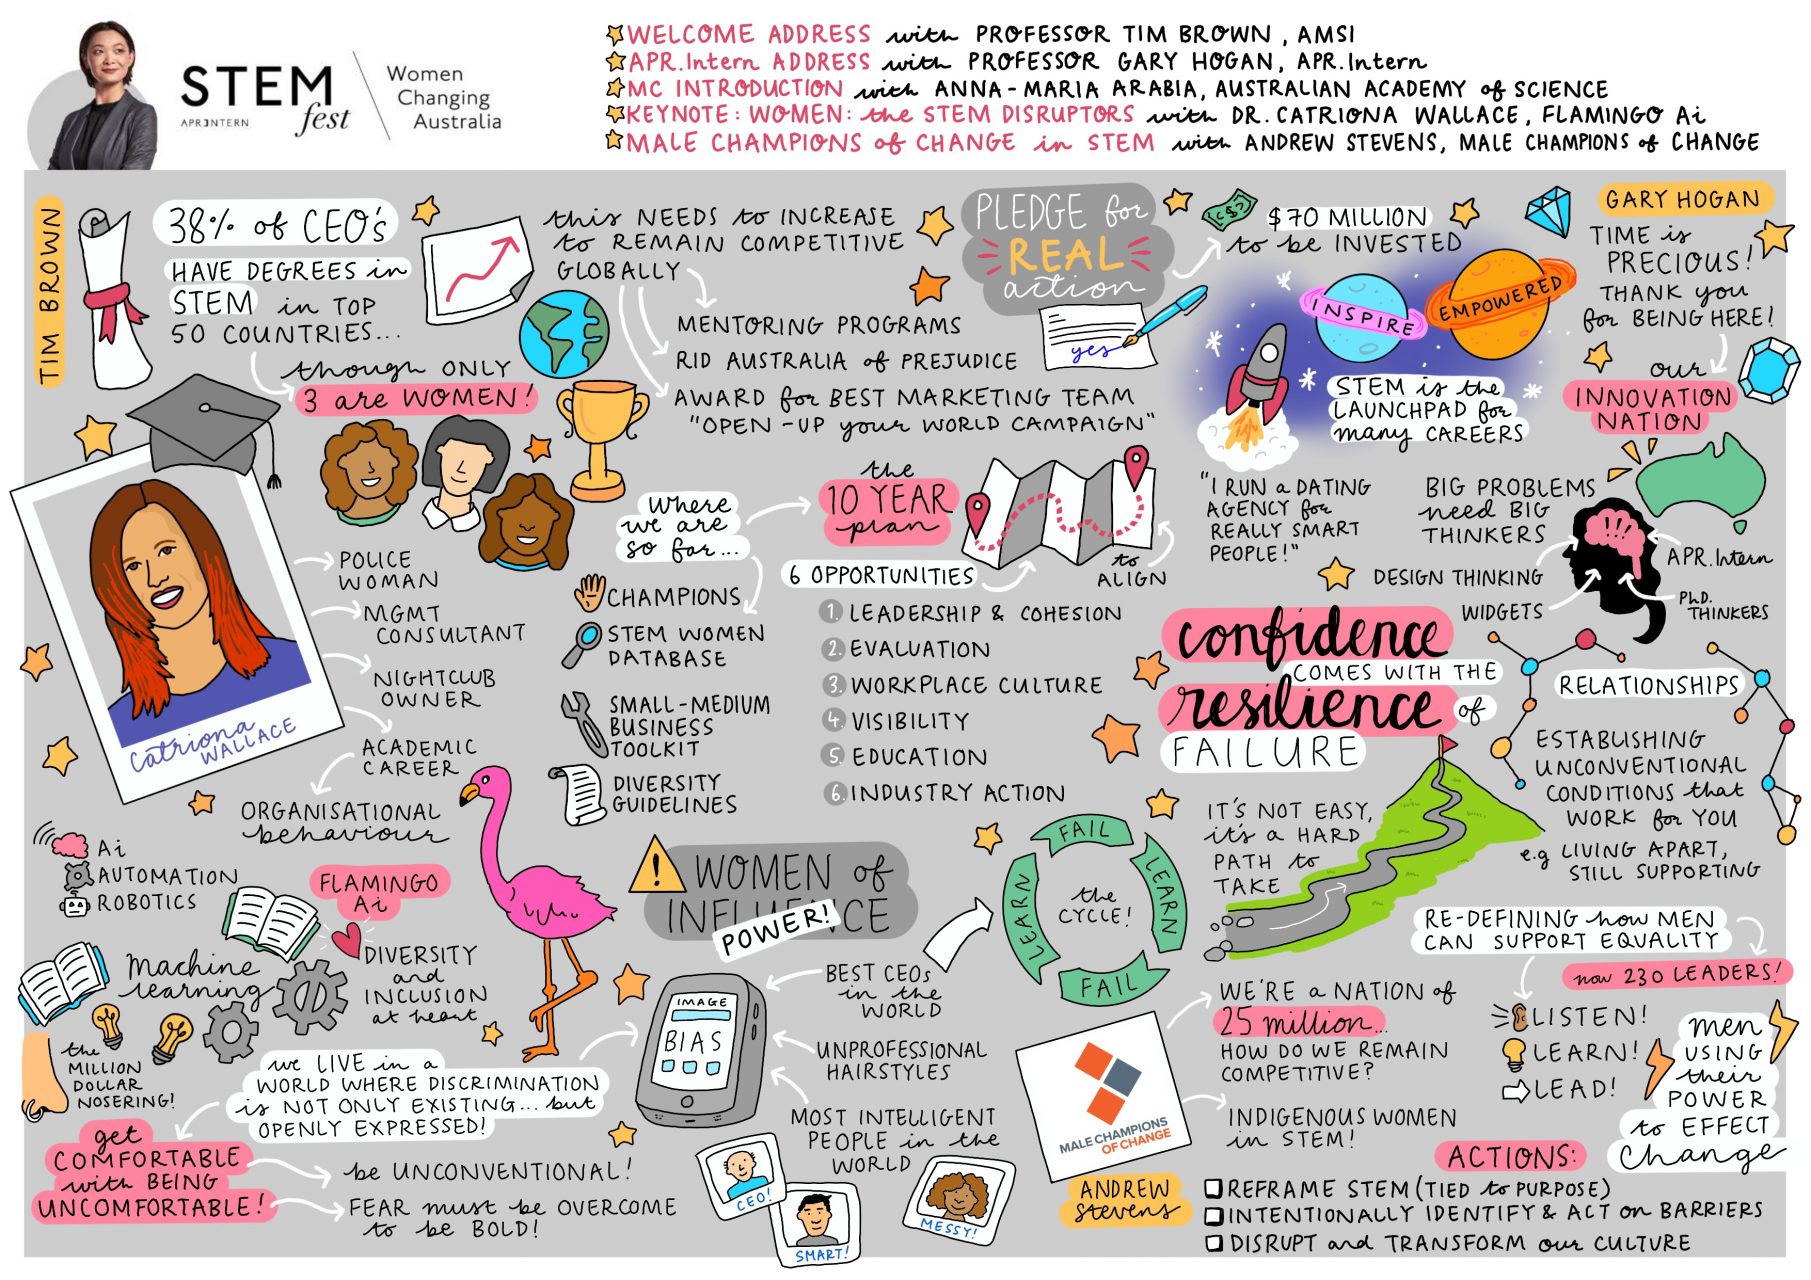 STEM
APRINTERN
fest
Women
Changing
Australia
WELCOME ADDRESS with PROFESSOR TIM BROWN, AMSI
APR.Intern ADDRESS with PROFESSOR GARY HOGAN, APR.Intern
MC INTRODUCTION with ANNA-MARIA ARABIA, AUSTRALIAN ACADEMY of SCIENCE
KEYNOTE: WOMEN: the STEM DISRUPTORS with DR. CATRIONA WALLACE, FLAMINGO Ai
MALE CHAMPIONS of CHANGE in STEM with ANDREW STEVENS, MALE CHAMPIONS of CHANGE
TIM BROWN
38% of CEO's
HAVE DEGREES in
STEM in TOP
50 COUNTRIES...
though ONLY
3 are WOMEN!
this NEEDS to INCREASE
to REMAIN COMPETITIVE
GLOBALLY
MENTORING PROGRAMS
RID AUSTRALIA of PREJUDICE
AWARD for BEST MARKETING TEAM
"OPEN-UP your WORLD CAMPAIGN"
PLEDGE for
REAL
action
yes
$70 MILLION
to be INVESTED
INSPIRE
EMPOWERED
STEM is the
LAUNCHPAD for
many CAREERS
GARY HOGAN
TIME is
PRECIOUS!
THANK you
for BEING HERE!
our
INNOVATION
NATION
"I RUN a DATING
AGENCY for
REALLY SMART
PEOPLE!"
BIG PROBLEMS
need BIG
THINKERS
!!!
DESIGN THINKING
WIDGETS
APR.Intern
PhD.
THINKERS
Catriona
WALLACE
POLICE
WOMAN
MGMT
CONSULTANT
NIGHTCLUB
OWNER
ACADEMIC
CAREER
ORGANISATIONAL
behaviour
where
we are
so far...
CHAMPIONS
STEM WOMEN
DATABASE
SMALL-MEDIUM
BUSINESS
TOOLKIT
DIVERSITY
GUIDELINES
the
10 YEAR
plan
to
ALIGN
6 OPPORTUNITIES
1. LEADERSHIP & COHESION
2. EVALUATION
3. WORKPLACE CULTURE
4. VISIBILITY
5. EDUCATION
6. INDUSTRY ACTION
confidence
COMES WITH THE
resilience of
FAILURE
IT'S NOT EASY,
it's a HARD
PATH to
TAKE
RELATIONSHIPS
ESTABLISHING
UNCONVENTIONAL
CONDITIONS that
WORK for YOU
e.g LIVING APART,
STILL SUPPORTING
Ai
AUTOMATION
ROBOTICS
FLAMINGO
Ai
Machine
learning
DIVERSITY
and
INCLUSION
at heart
the
MILLION
DOLLAR
NOSERING!
we LIVE in a
WORLD WHERE DISCRIMINATION
is NOT ONLY EXISTING... but
OPENLY EXPRESSED!
get
COMFORTABLE
with BEING
UNCOMFORTABLE!
be UNCONVENTIONAL!
FEAR must be OVERCOME
to be BOLD!
!
WOMEN of
INFLUENCE
POWER!
IMAGE
BIAS
BEST CEOs
in the
WORLD
UNPROFESSIONAL
HAIRSTYLES
MOST INTELLIGENT
PEOPLE in the
WORLD
CEO!
SMART!
MESSY!
FAIL
LEARN
FAIL
LEARN
the
CYCLE!
MALE CHAMPIONS
OF CHANGE
ANDREW
Stevens
WE'RE a NATION of
25 million...
HOW DO WE REMAIN
COMPETITIVE?
INDIGENOUS WOMEN
in STEM!
RE-DEFINING how MEN
CAN SUPPORT EQUALITY
now 230 LEADERS!
LISTEN!
LEARN!
LEAD!
men
USING
their
POWER
to EFFECT
Change
ACTIONS:
REFRAME STEM (TIED to PURPOSE)
INTENTIONALLY IDENTIFY & ACT on BARRIERS
DISRUPT and TRANSFORM our CULTURE